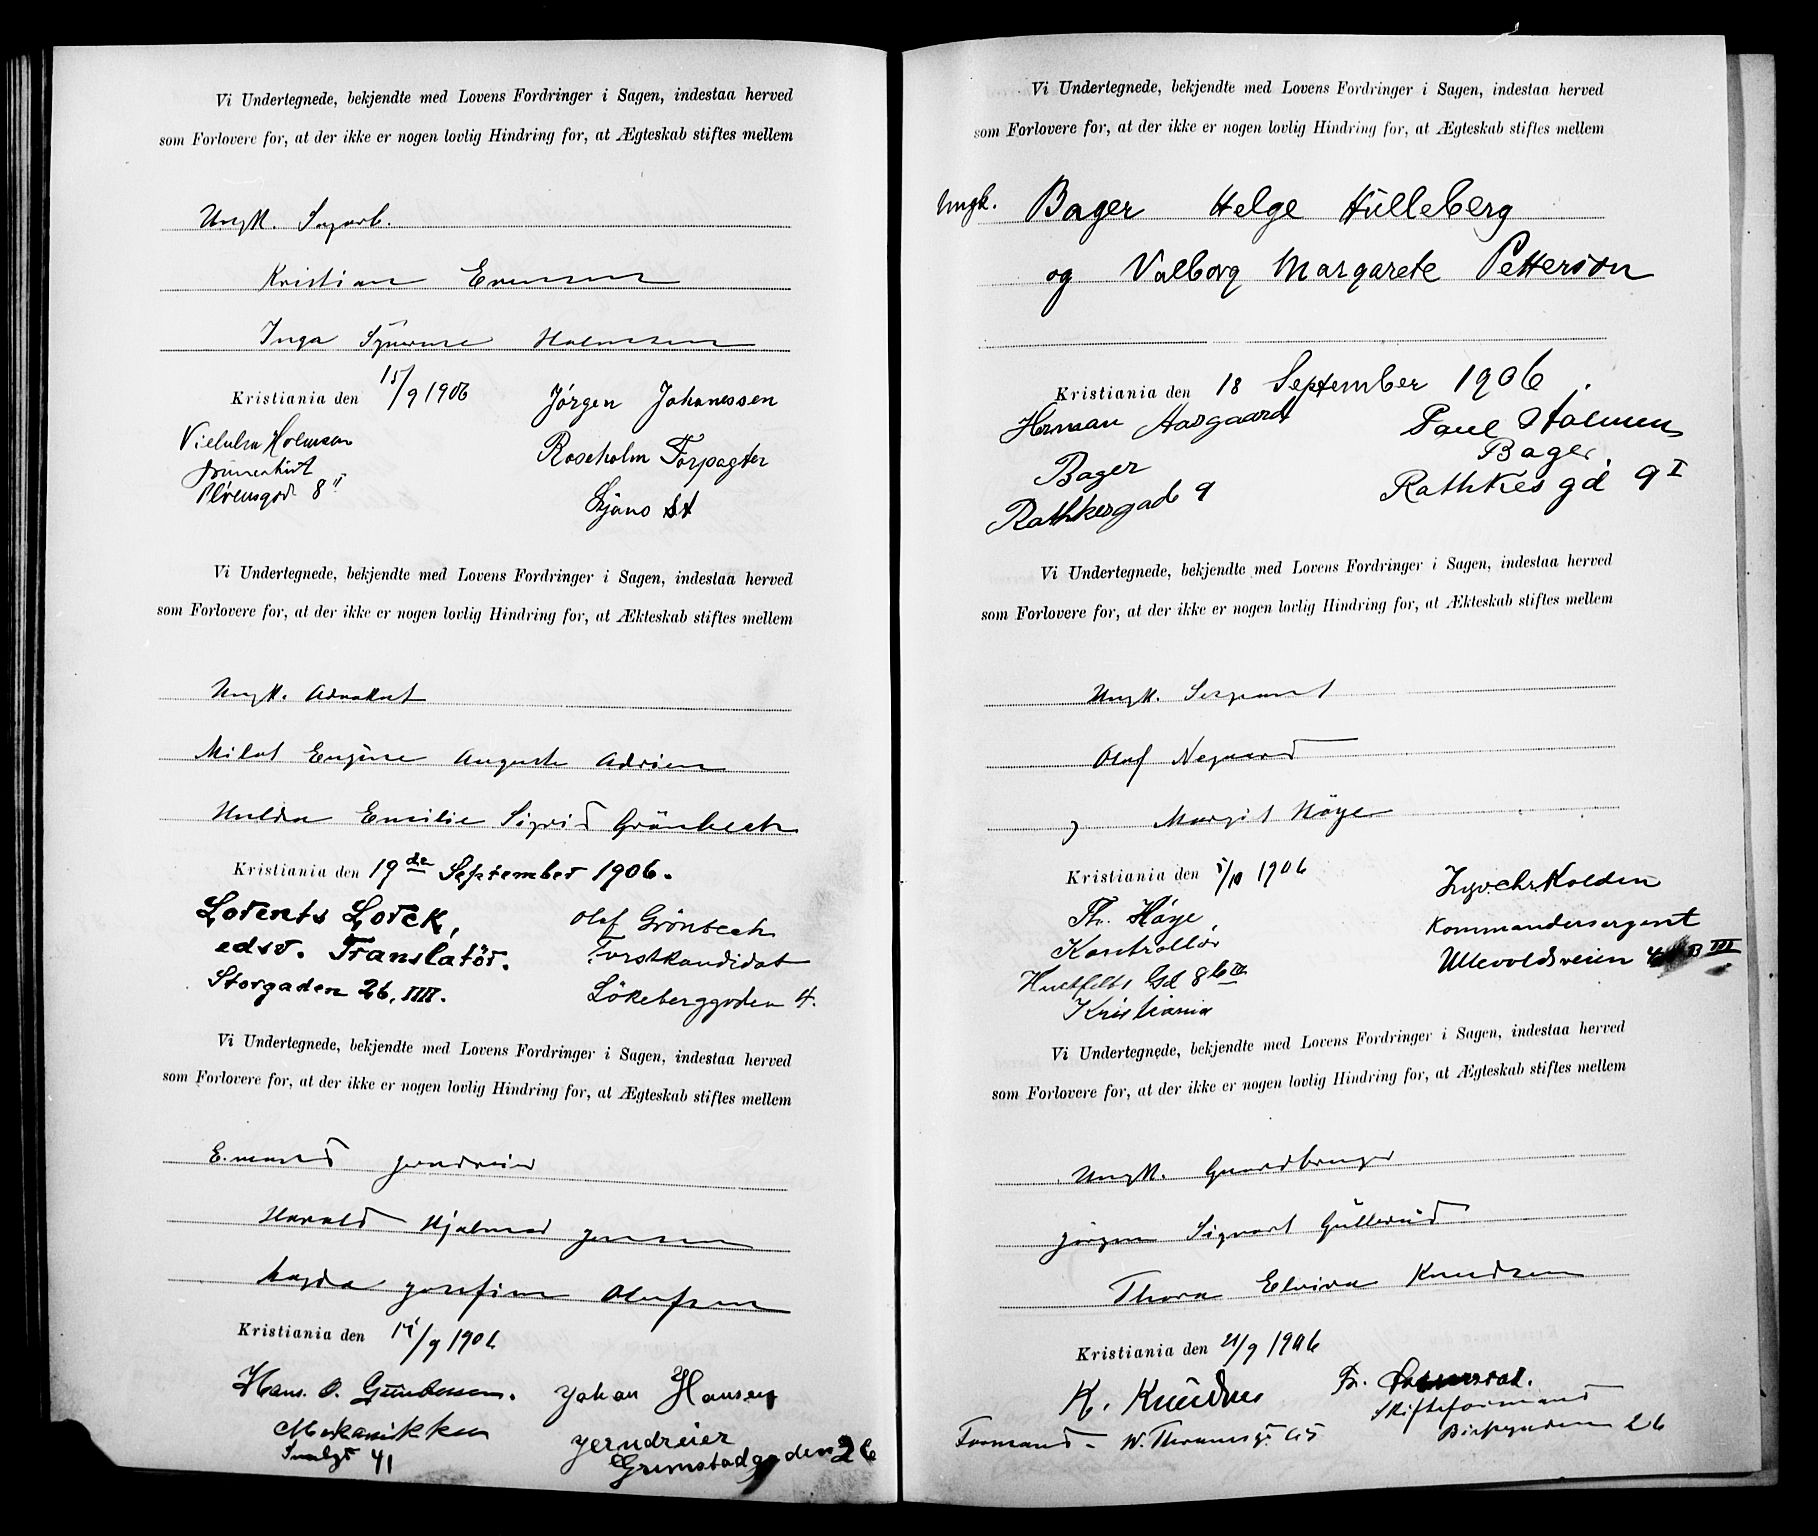 Vi Undertegnede, bekjendte med Lovens Fordringer i Sagen, indestaa herved
som Forlovere for, at der ikke er nogen lovlig Hindring for, at Ægteskab stiftes mellem
Ungk.
Kristian Evensen
Inga
Kristiania den 15/9 1906
Jörgen Johanessen
Holmsen
Roseholm Forpagter
8 II
Ljans St
Vi Undertegnede, bekjendte med Lovens Fordringer i Sagen, indestaa herved
som Forlovere for, at der ikke er nogen lovlig Hindring for, at Ækteskab stiftes mellem
Ungk. Advokat
Milot Eugène Auguste Adrien
Hulda Emilie Sigrid Grönbech
Kristiania den 19de September 1906.
Lorents Lorck,
Olaf Grönbech
edsv. Translatör.
Forstkandidat
Storgaden 26, IIII.
Lökeberggaden 4.
Vi Undertegnede, bekjendte med Lovens Fordringer i Sagen, indestaa herved
som Forlovere for, at der ikke er nogen lovlig Hindring for, at Ægteskab stiftes mellem
E.mand jerndreier
Harald Hjalmar Jensen
Magda Josefine Olufsen
Kristiania den /9 1906
Hans. O. Gundersen.
Johan Hansen
Mekaniker
jerndreier
41
Grimstadgaden 26
Vi Undertegnede, bekjendte med Lovens Fordringer i Sagen, indestaa herved
som Forlovere for, at der ikke er nogen lovlig Hindring for, at Ægteskab stiftes mellem
Ungk. Bager Helge Hulleberg
og Valborg Margarete Petterson
Kristiania den 18 September 1906.
Herman Aasgaard
Paul Holmen
Bager
Bager.
Rathkesgad 9
Rathkes gd 9 I
Vi Undertegnede, bekjendte med Lovens Fordringer i Sagen, indestaa herved
som Forlovere for, at der ikke er nogen lovlig Hindring for, at Ækteskab stiftes mellem
Ungk. Sergeant
Olaf Negaard
Margit Höye
Kristiania den 5/10 1906
Th. Höye
Kontrollör
Kommandersergent
Huitfeldts Gd 8b IV
Ullevoldsveien III
Kristiania
Vi Undertegnede, bekjendte med Lovens Fordringer i Sagen, indestaa herved
som Forlovere for, at der ikke er nogen lovlig Hindring for, at Ægteskab stiftes mellem
Ungk. Gaardbruger
Jörgen Sigvart Gullerud
Thora Elvira Knudsen
Kristiania den 21/9 1906
K. Knudsen
Fr.
Skifteformand
Formand - W. Thranesg. 65
26